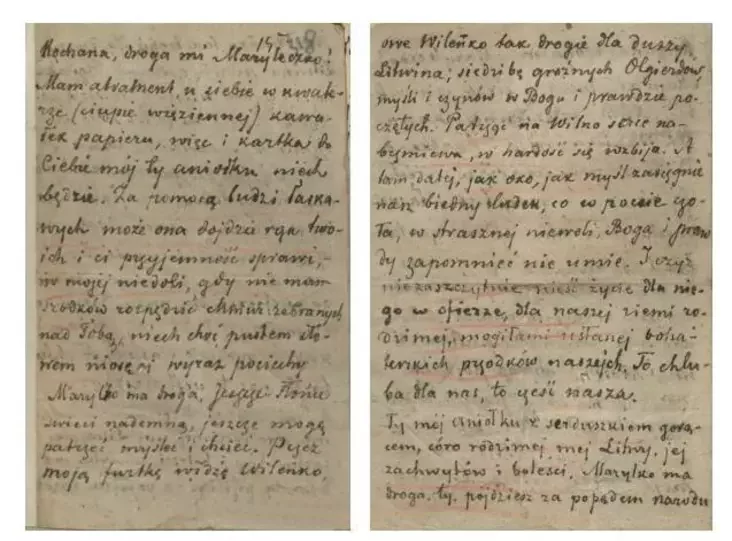 147 48
Kochana, droga mi Maryleczko!
Mam atrament, u siebie w kwate-
rze (ciupie więziennej) kawa-
łek papieru, więc i kartka do
Ciebie mój ty aniołku niech
będzie. Za pomocą ludzi łaska-
wych może ona dojdzie rąk two-
ich i ci przyjemność sprawi,
w mojej niedoli, gdy nie mam
srodków rozpędzić chmur zebranych
nad Tobą, niech choć pustem sło-
wem niosę ci wyraz pociechy
Marylko ma droga, Jeszcze słońce
swieci nademną, jeszcze mogę
patrzeć myśleć i chcieć. Przez
moją furtkę widzę
owe Wileńko tak drogie dla duszy
Litwina; siedzibę groźnych Olgierdów,
myśli i czynów w Bogu i prawdzie po-
czętych. Patrząc na Wilno serce na-
brzmiewa, w hardość się wzbija. A
tam dalej, jak oko, jak myśl zasięgnie
nasz biedny ludek, co w pocie czo-
ła, w strasznej niewoli, Boga i praw
dy zapomnieć nie umie. I czyż
niezaszczytnie nieść życie dla nie-
go w ofierze, dla naszej ziemi ro-
dzimej, mogiłami usłanej boha-
terskich przodków naszych. To chlu-
ba dla nas, to cześć nasza.
Ty mój aniołku z serduszkiem gorą-
cem, córo rodzimej mej Litwy, jej
zachwytów i boleści, Marylko ma
droga, ty, pójdziesz za popędem narodu